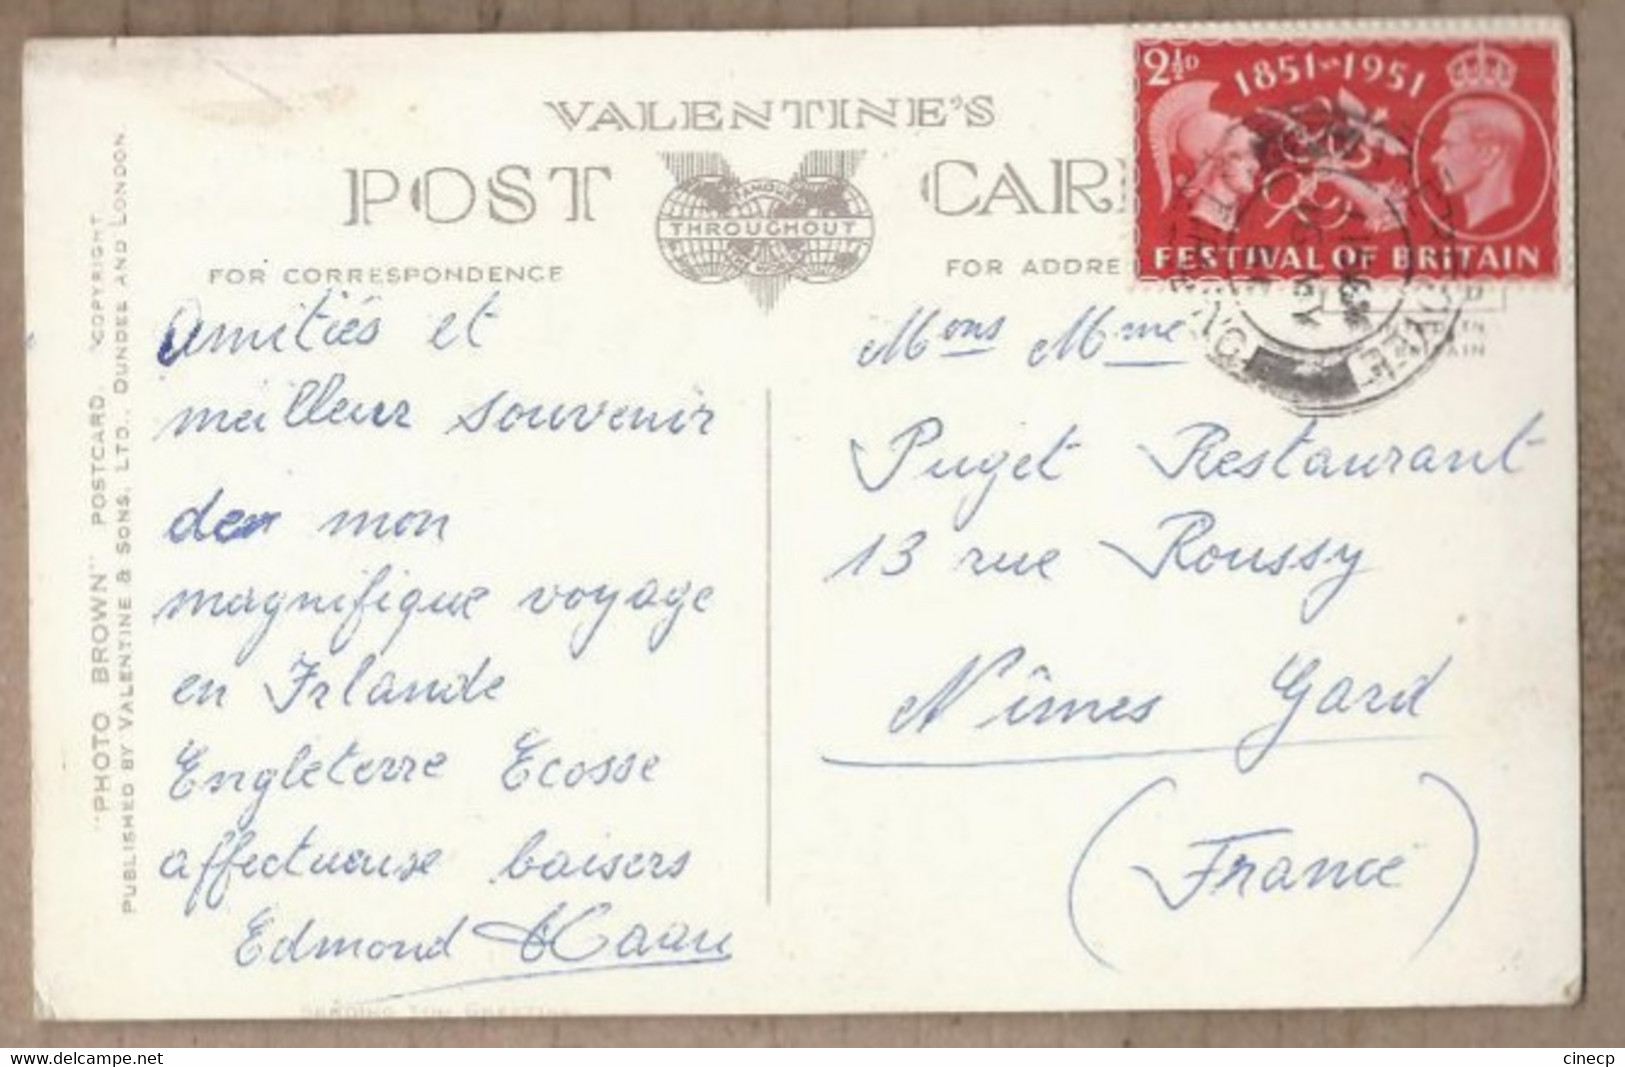 VALENTINE'S
POST CAR
THROUGHOUT
FOR CORRESPONDENCE
FOR ADDRE
2½D
1851-1951
FESTIVAL OF BRITAIN
"PHOTO BROWN" POSTCARD. COPYRIGHT
PUBLISHED BY VALENTINE & SONS, LTD., DUNDEE AND LONDON.
Amitiés et
meilleur souvenir
de mon
magnifique voyage
en Irlande
Engleterre Ecosse
affectueuse baisers
Edmond
Mons Mme
Puget Restaurant
13 rue Roussy
Nîmes Gard
(France)
www.delcampe.net
cinecp